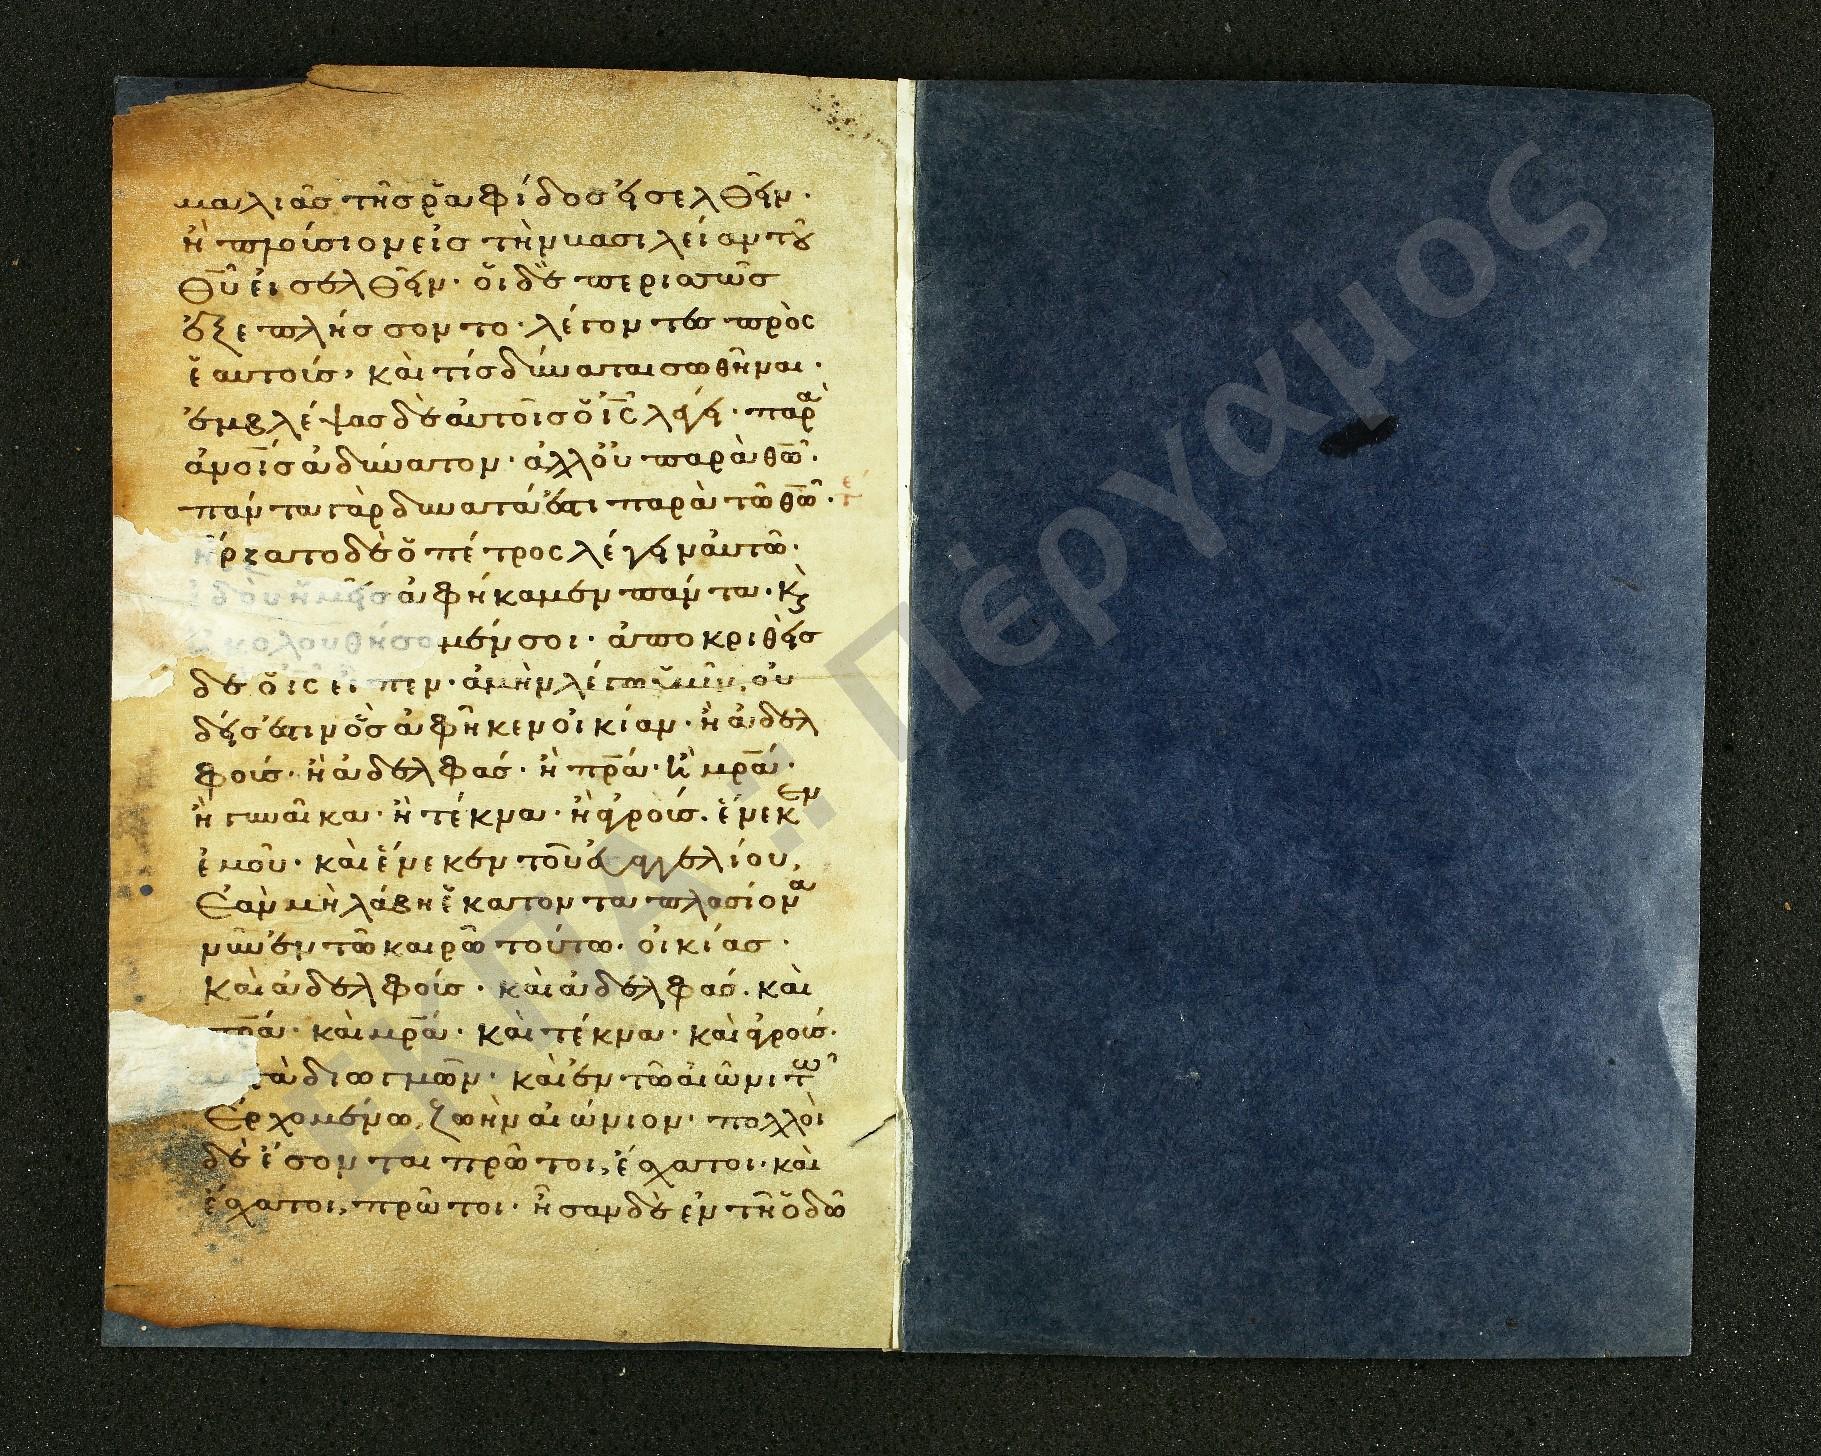 μαλιᾶς τῆς ῥαφίδος εἰσελθεῖν·
ἢ πλούσιον εἰς τὴν βασιλείαν τοῦ
θυ εἰσελθεῖν· οἱ δὲ περισσῶς
ἐξεπλήσσοντο· λέγοντες πρὸς
ἑαυτούς· καὶ τίς δύναται σωθῆναι·
ἐμβλέψας δὲ αὐτοῖς ὁ ις λέγει· παρὰ
ἀνοις ἀδύνατον· ἀλλ' οὐ παρὰ θω·
πάντα γὰρ δυνατά ἐστι παρὰ τῶ θω·
ἤρξατο δὲ ὁ πέτρος λέγειν αὐτῶ·
ἰδοὺ ἡμεῖς ἀφήκαμεν πάντα· κ
ἠκολουθήσαμέν σοι· ἀποκριθεὶς
δὲ ὁ ις εἶπεν· ἀμὴν λέγω ὑμῖν, οὐ
δείς ἐστιν ὃς ἀφῆκεν οἰκίαν· ἢ ἀδελ
φούς· ἢ ἀδελφάς· ἢ πρα· ἢ μρα·
ἢ γυναῖκα· ἢ τέκνα· ἢ ἀγρούς· ἕνεκεν
ἐμοῦ· καὶ ἕνεκεν τοῦ εὐαγγελίου,
ἐὰν μὴ λάβη ἑκατονταπλασίονα
νῦν ἐν τῶ καιρῶ τούτω· οἰκίας·
καὶ ἀδελφούς· καὶ ἀδελφάς· καὶ
πρα· καὶ μρα· καὶ τέκνα· καὶ ἀγρούς·
μετὰ διωγμῶν· καὶ ἐν τῶ αἰῶνι τῶ
ἐρχομένω, ζωὴν αἰώνιον· πολλοὶ
δὲ ἔσονται πρῶτοι, ἔσχατοι· καὶ
ἔσχατοι, πρῶτοι· ἦσαν δὲ ἐν τῆ ὁδῶ
ΕΚΠΑ :: Πέργαμος